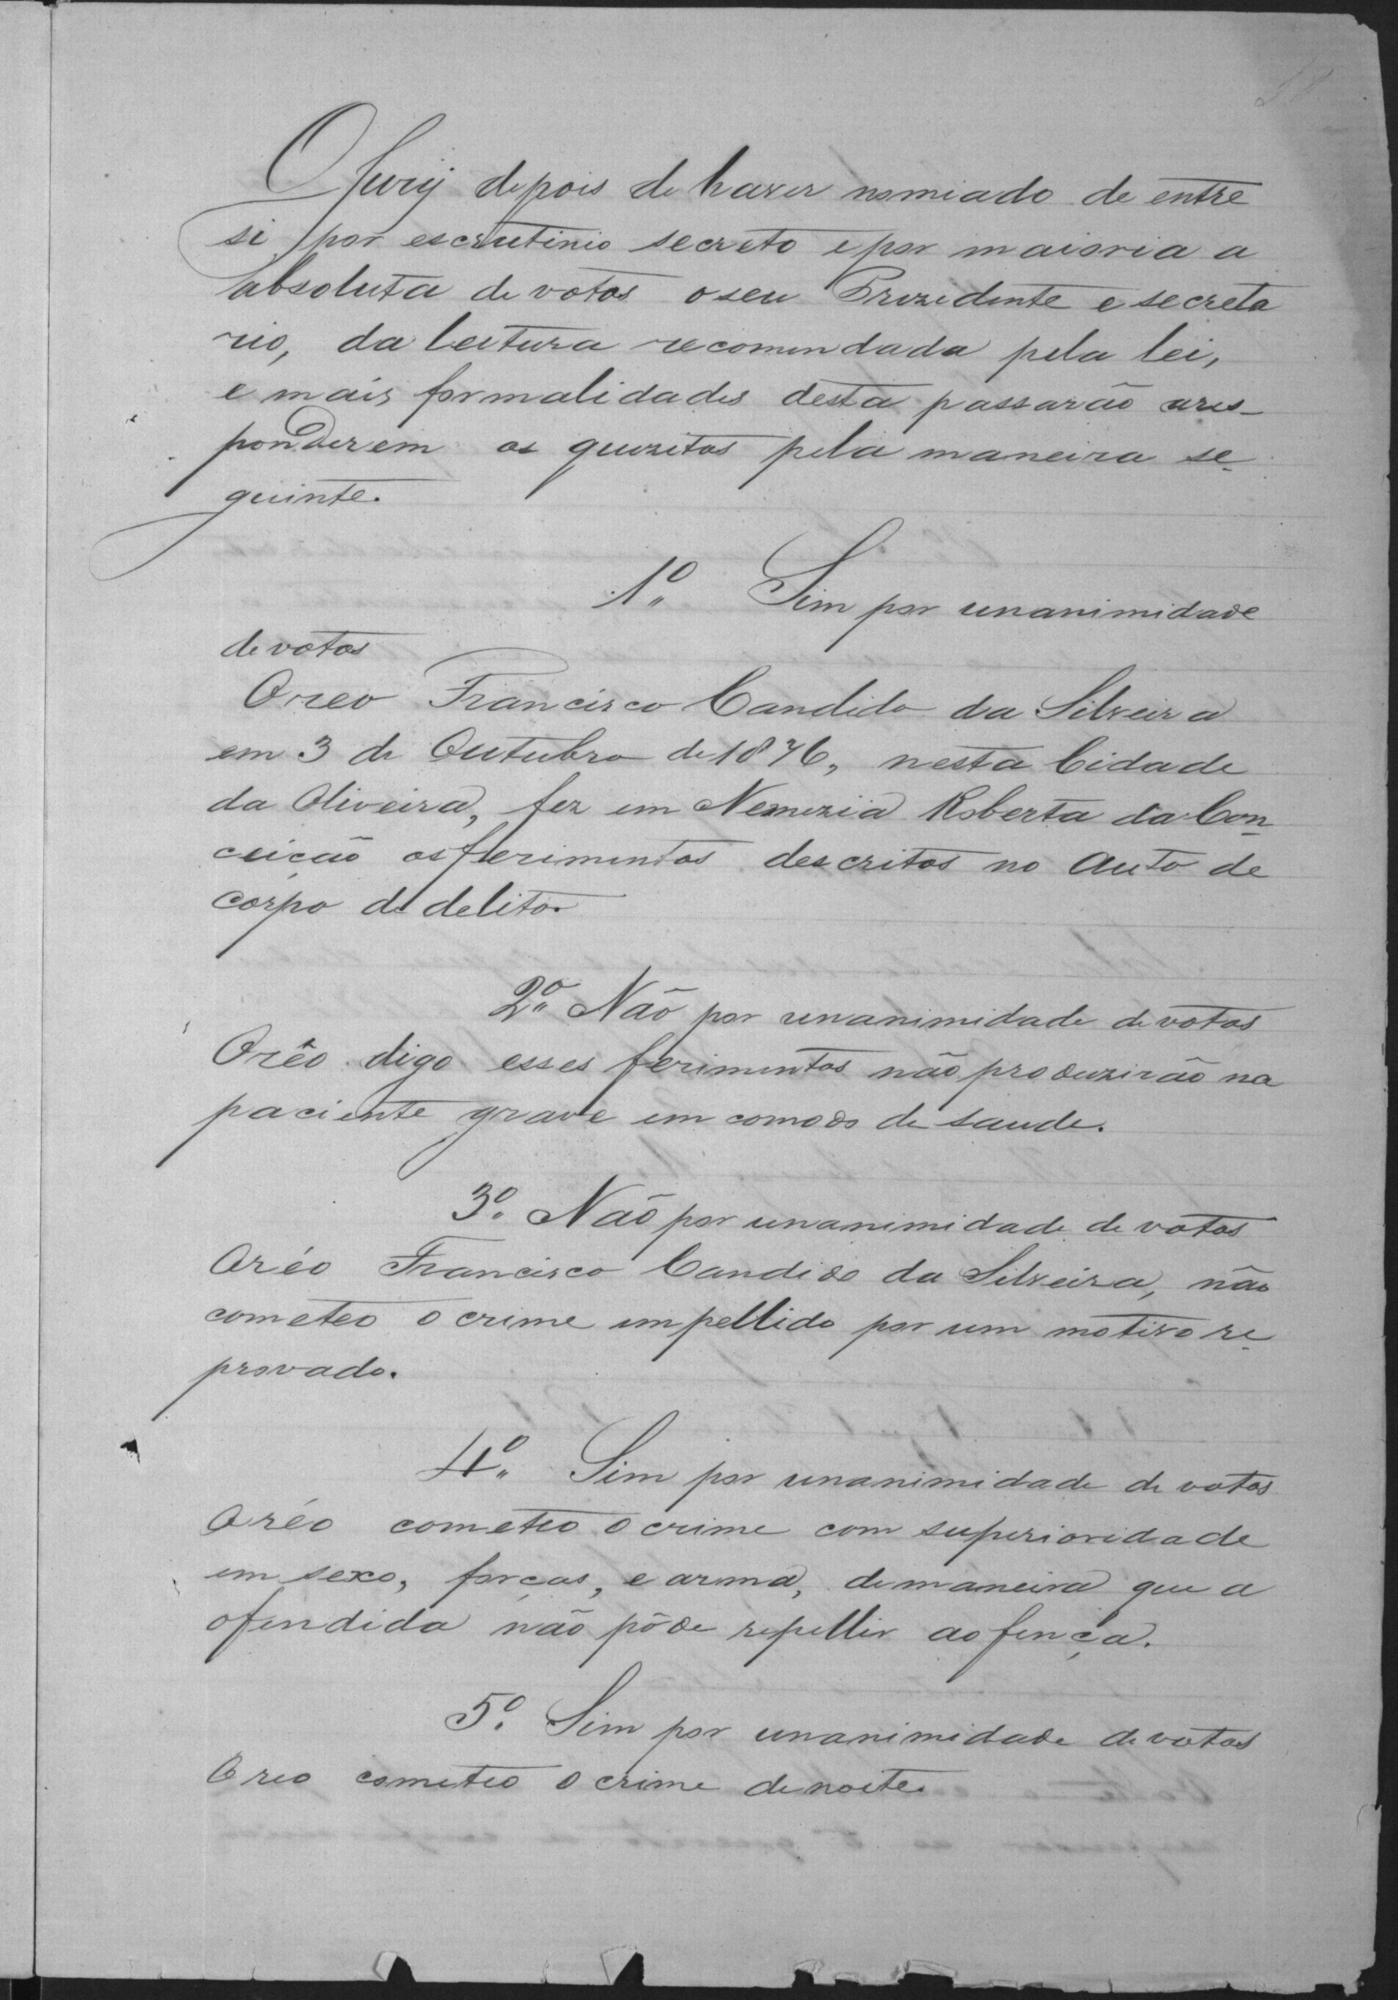 O Jury depois de haver nomiado de entre
si por escrutinio secreto e por maioria a
absoluta de votos o seu Prezidente e secreta
rio, da leitura recomendada pela lei,
e mais formalidades desta passarão a res-
ponderem os quezitos pela maneira se-
guinte.
1º. Sim por unanimidade
de votos
O reo Francisco Candido da Silveira
em 3 de Outubro de 1876, nesta Cidade
da Oliveira, fez em Nemezia Roberta da Con-
ceição os ferimentos descritos no Auto de
corpo de delito.
2º. Não por unanimidade de votos
O rêo digo esses ferimentos não produzirão na
paciente grave em comodo de saude.
3º. Não por unanimidade de votos
O réo Francisco Candido da Silveira, não
cometeo o crime impellido por um motivo re-
provado.
4º. Sim por unanimidade de votos
O réo cometeo o crime com superioridade
em sexo, forças, e arma, de maneira que a
ofendida não pôde repellir a ofença.
5º. Sim por unanimidade de votos
O reo cometeo o crime de noite.